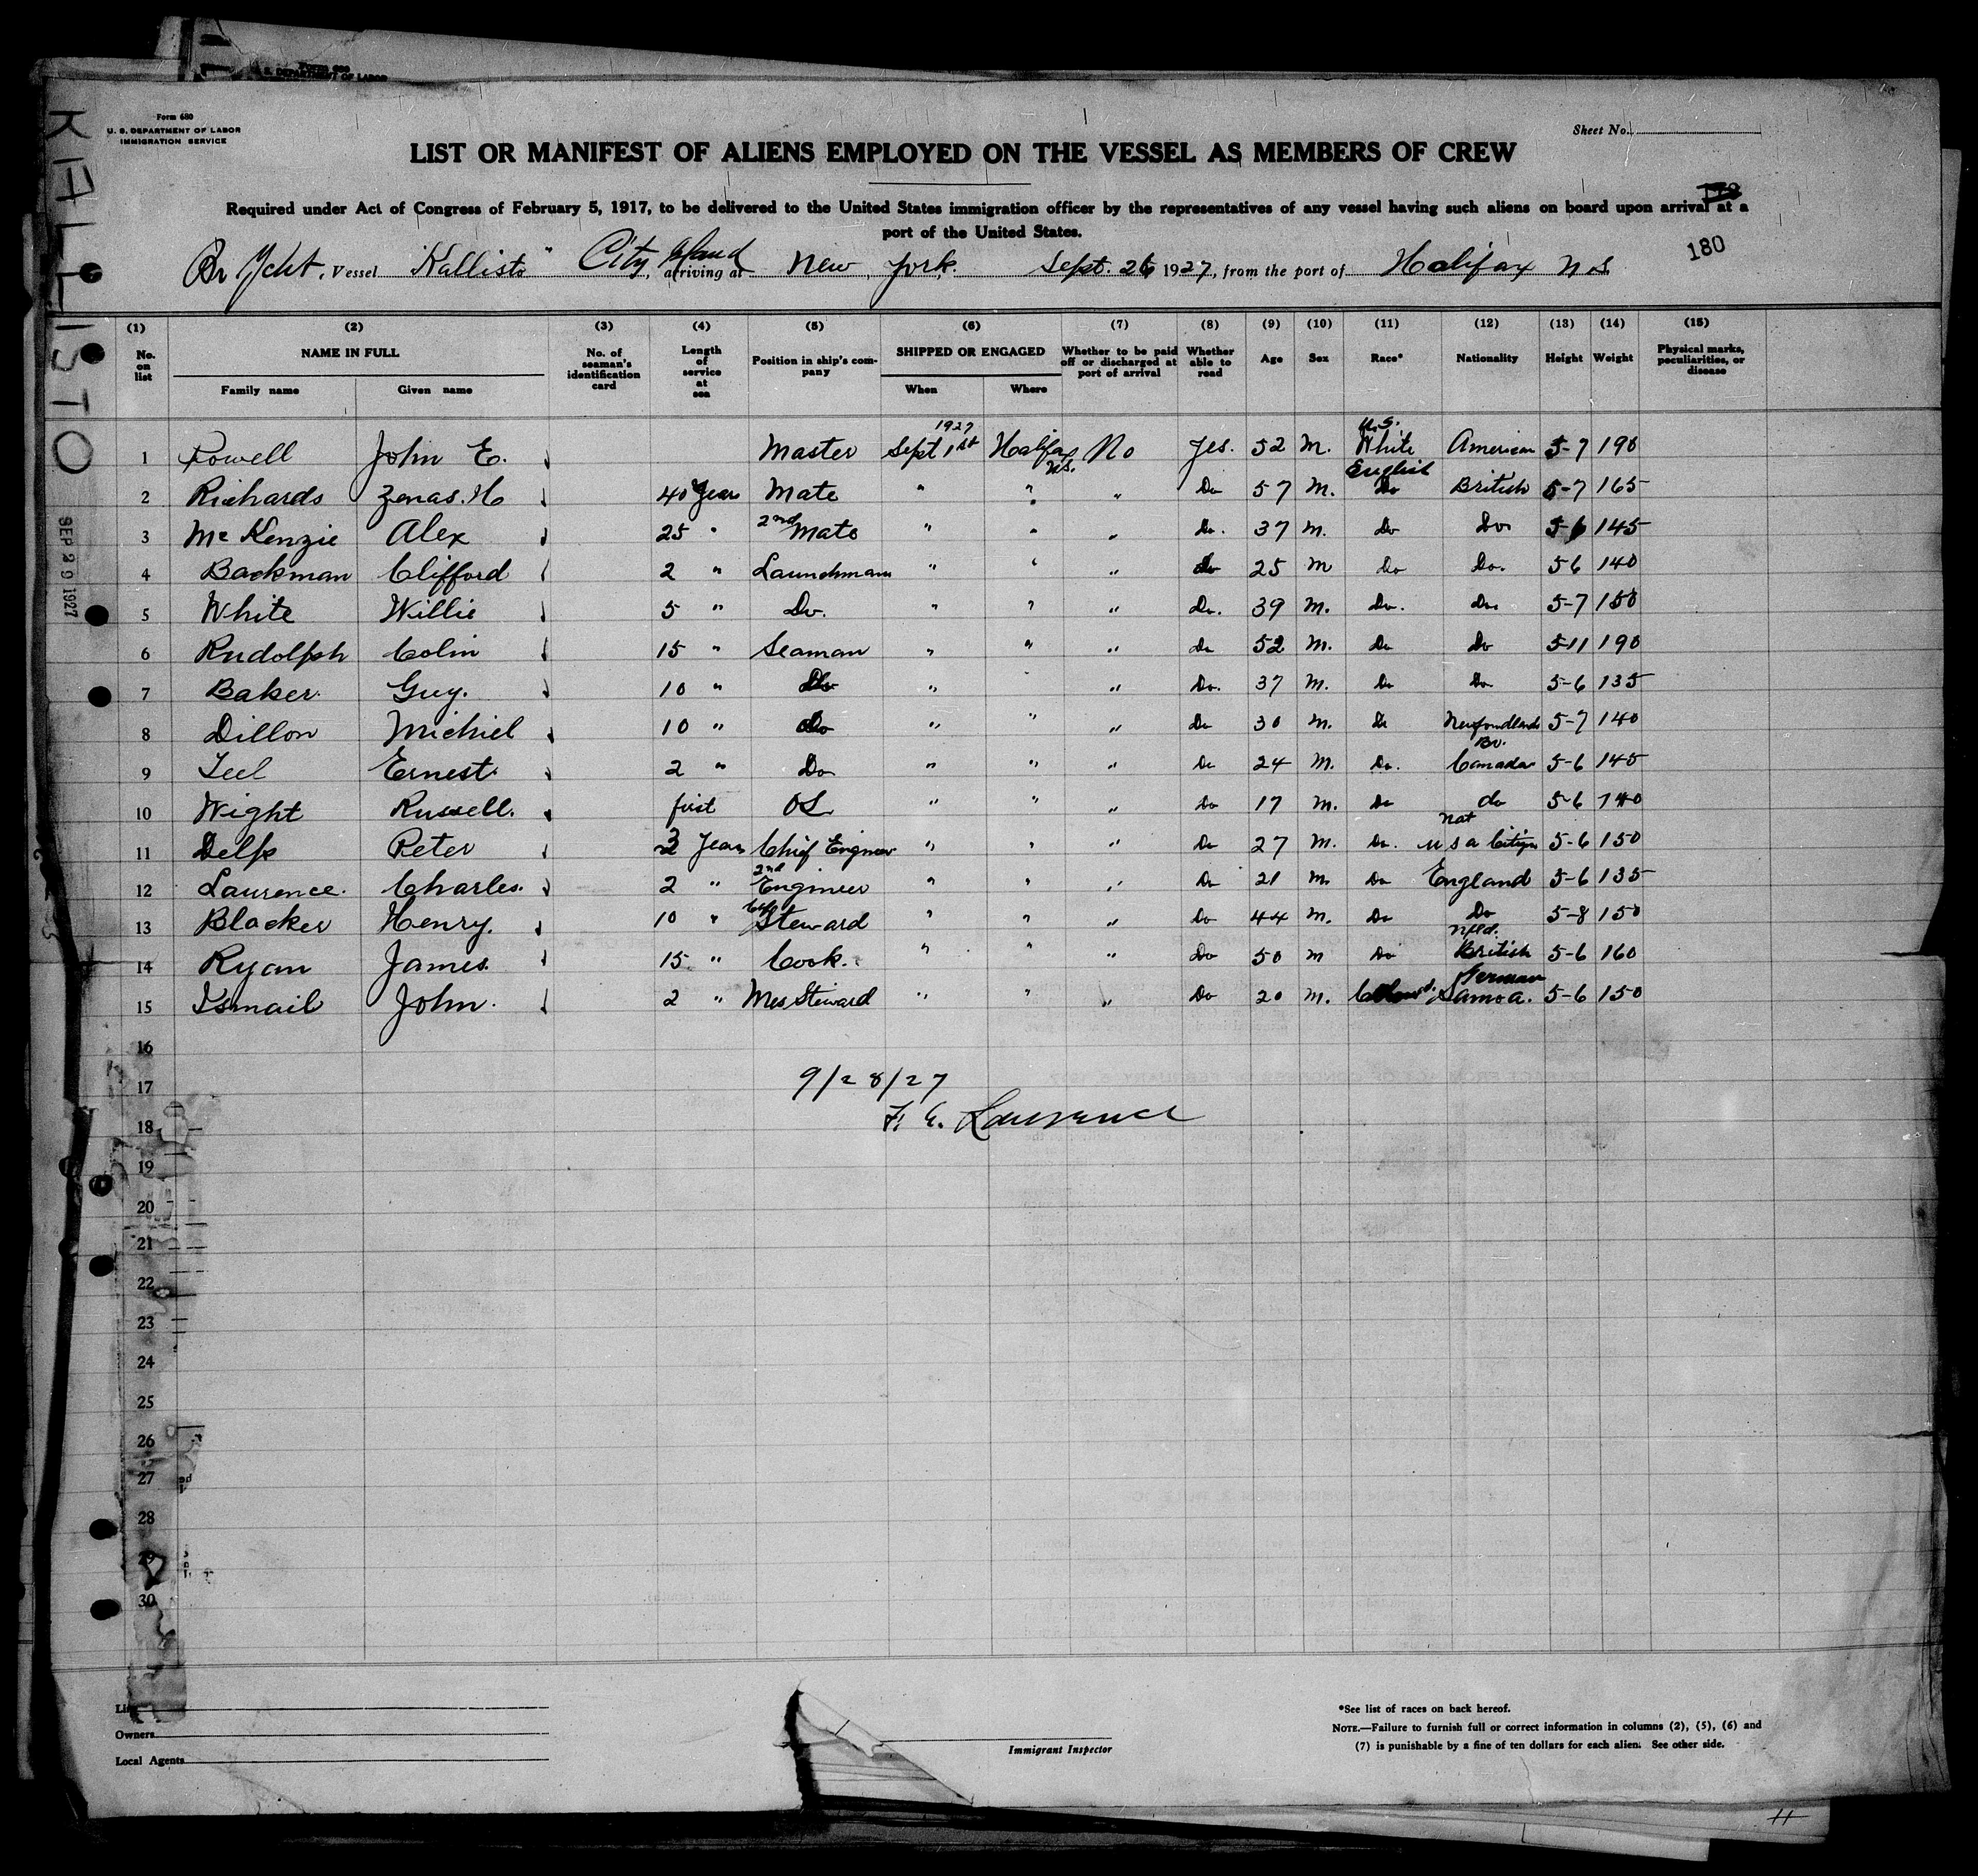 Form 680
U. S. DEPARTMENT OF LABOR
IMMIGRATION SERVICE
Sheet No.
LIST OR MANIFEST OF ALIENS EMPLOYED ON THE VESSEL AS MEMBERS OF CREW
Required under Act of Congress of February 5, 1917, to be delivered to the United States immigration officer by the representatives of any vessel having such aliens on board upon arrival at a
port of the United States.
180
Br Ycht. Vessel "Kallisto" City Island, arriving at New York. Sept. 26 1927, from the port of Halifax N.S
KALLISTO
SEP 29 1927
(1) (2) (3) (4) (5) (6) (7) (8) (9) (10) (11) (12) (13) (14) (15)
No. on list NAME IN FULL No. of seaman's identification card Length of service at sea Position in ship's company SHIPPED OR ENGAGED Whether to be paid off or discharged at port of arrival Whether able to read Age Sex Race* Nationality Height Weight Physical marks, peculiarities, or disease
Family name Given name When Where
1 Powell John E. Master Sept 1st 1927 Halifax N.S. No Yes. 52 M. U.S. White American 5-7 190
2 Richards Zenas. H 40 Years Mate " " " Do 57 M. English Do British 5-7 165
3 McKenzie Alex 25 " 2nd Mate " " " Do. 37 M. Do Do 5-6 145
4 Backman Clifford 2 " Launchman " " " Do 25 M Do Do. 5 6 140
5 White Willie 5 " Do. " " " Do. 39 M. Do. Do. 5-7 150
6 Rudolph Colin 15 " Seaman " " " Do 52 M. Do Do 5-11 190
7 Baker. Guy. 10 " Do " " Do. 37 M. Do Do 5-6 135
8 Dillon Michiel 10 " Do " " " Do 30 M. Do Newfoundland Br. 5-7 140
9 Teel Ernest. 2 " Do " " " Do 24 M. Do. Canada 5-6 145
10 Wight Russell. first OS " " " Do 17 M. Do do 5-6 140
11 Delp Peter 3 Years Chief Engineer " " " Do 27 M. Do. Nat U S A Citizen 5-6 150
12 Laurence. Charles. 2 " 2nd Engineer " " " Do 21 M. Do England 5-6 135
13 Blacker Henry. 10 " Steward " " " Do 44 M. Do Do 5-8 150
14 Ryan James. 15 " Cook. " " " Do 50 M Do Nfld. British 5-6 160
15 Ismail John. 2 " Mes Steward " " " Do 20 M. German Samoa. 5-6 150
16
17
9/28/27
18
F. E. Lawrence
19
20
21
22
23
24
25
26
27
28
29
30
Line
Owners
Local Agents
Immigrant Inspector
*See list of races on back hereof.
NOTE.—Failure to furnish full or correct information in columns (2), (5), (6) and
(7) is punishable by a fine of ten dollars for each alien. See other side.